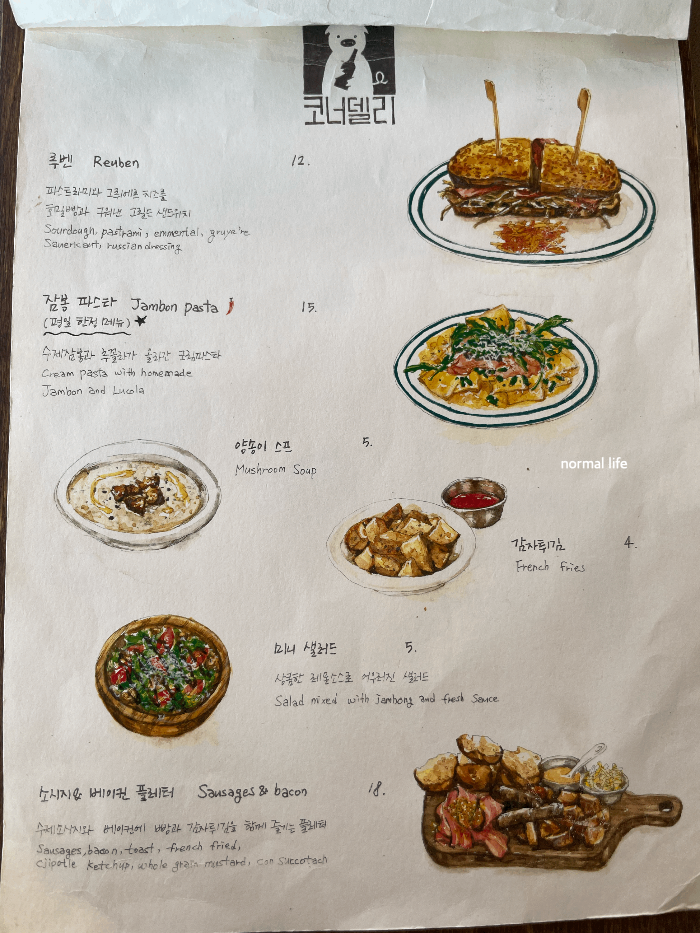 코너델리
루벤 Reuben 12.
파스트라미와 그뤼에르 치즈를
호밀빵과 구워낸 그릴드 샌드위치
Sourdough, pastrami, emmental, gruye're
Sauerkraut, russian dressing
잠봉 파스타 Jambon pasta 15.
(평일 한정 메뉴) ★
수제잠봉과 루꼴라가 올라간 크림파스타
Cream pasta with homemade
Jambon and Lucola
양송이 스프 5.
Mushroom Soup
normal life
감자튀김 4.
French fries
미니 샐러드 5.
상큼한 레몬소스로 어우러진 샐러드
Salad mixed with jambong and fresh sauce
소시지& 베이컨 플레터 Sausages & bacon 18.
수제소시지와 베이컨에 빵과 감자튀김을 함께 즐기는 플레터
Sausages, bacon, toast, french fried,
Cjipotle ketchup, whole grain mustard, con succotach